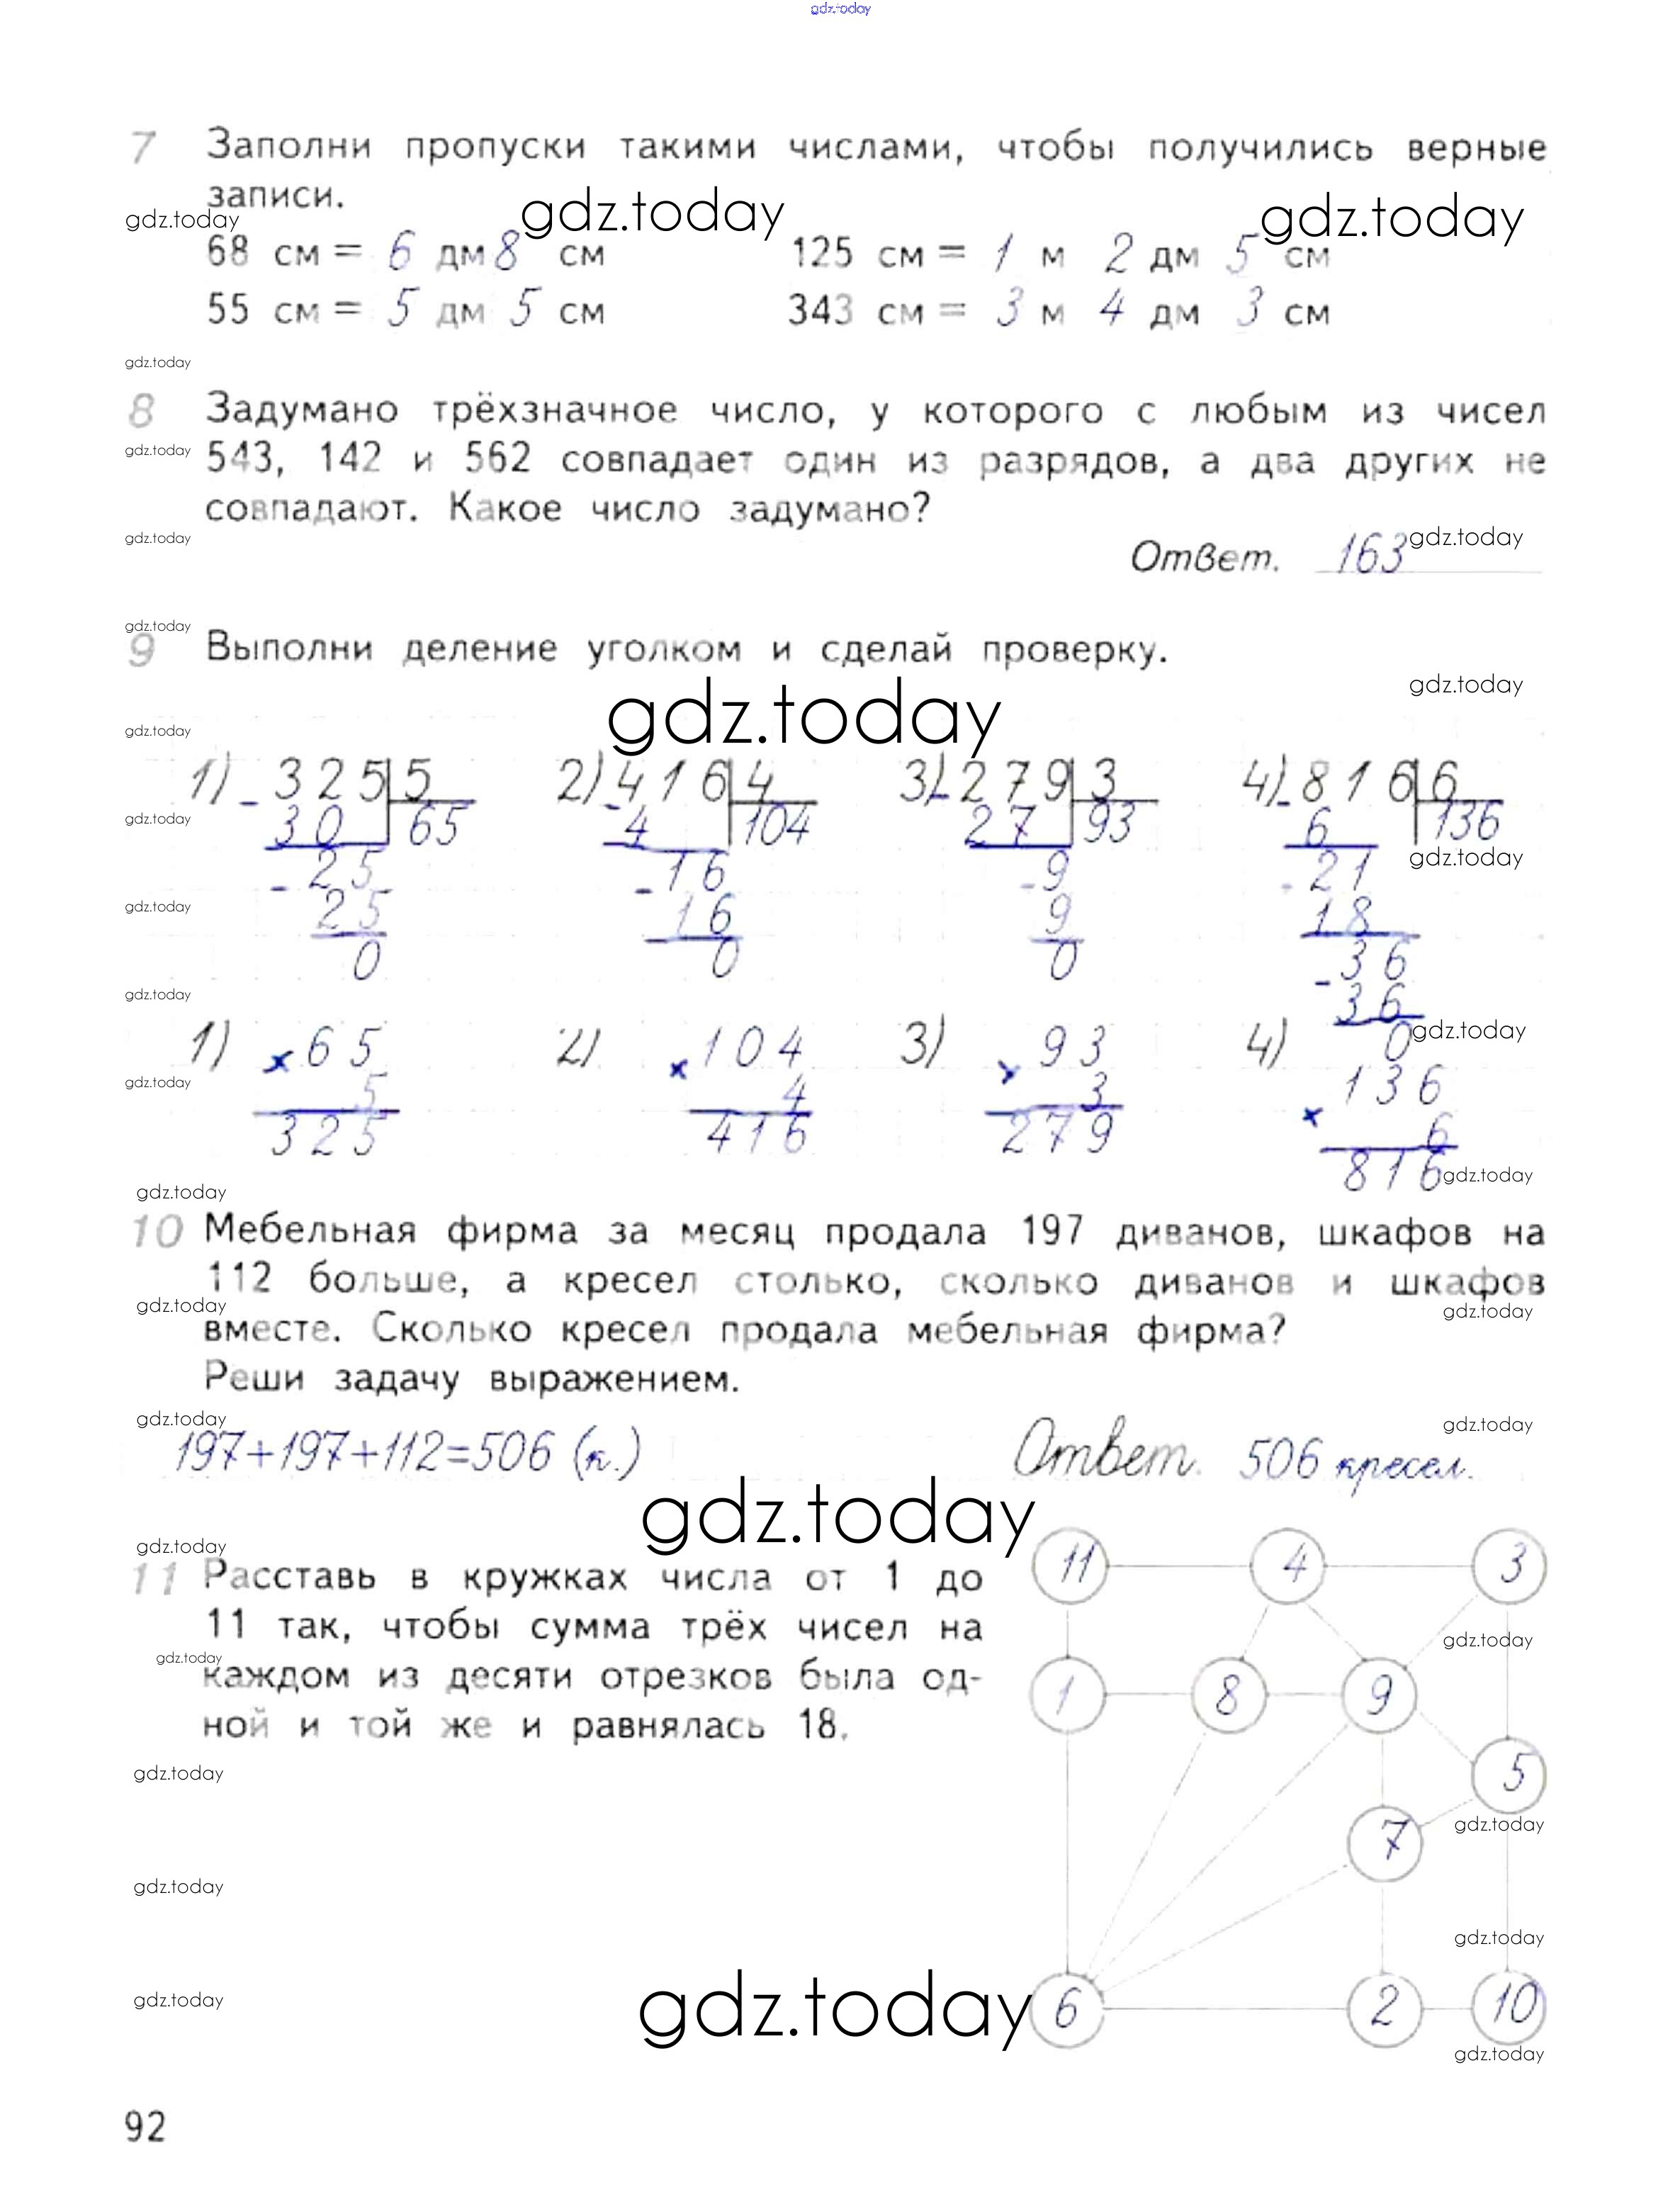 gdz.today
7 Заполни пропуски такими числами, чтобы получились верные
записи.
gdz.today gdz.today gdz.today
68 см = 6 дм 8 см 125 см = 1 м 2 дм 5 см
55 см = 5 дм 5 см 343 см = 3 м 4 дм 3 см
gdz.today
8 Задумано трёхзначное число, у которого с любым из чисел
gdz.today 543, 142 и 562 совпадает один из разрядов, а два других не
совпадают. Какое число задумано?
gdz.today Ответ. 163 gdz.today
gdz.today
9 Выполни деление уголком и сделай проверку.
gdz.today gdz.today
gdz.today
1) - 325 5 2) - 416 4 3) - 279 3 4) - 816 6
gdz.today 30 65 4 104 27 93 6 136
gdz.today
- 25 - 16 - 9 - 21
gdz.today 25 16 9 18
0 0 0 - 36
gdz.today 36
0 gdz.today
1) × 65 2) × 104 3) × 93 4) × 136
gdz.today 5 4 3 6
325 416 279 816 gdz.today
gdz.today
10 Мебельная фирма за месяц продала 197 диванов, шкафов на
112 больше, а кресел столько, сколько диванов и шкафов
gdz.today gdz.today
вместе. Сколько кресел продала мебельная фирма?
Реши задачу выражением.
gdz.today gdz.today
197+197+112=506 (к.) Ответ. 506 кресел.
gdz.today
gdz.today
11 Расставь в кружках числа от 1 до
11 так, чтобы сумма трёх чисел на
gdz.today gdz.today
каждом из десяти отрезков была од-
ной и той же и равнялась 18.
11 4 3
1 8 9
gdz.today 5
gdz.today
7
gdz.today
gdz.today
gdz.today gdz.today
6 2 10
gdz.today
92